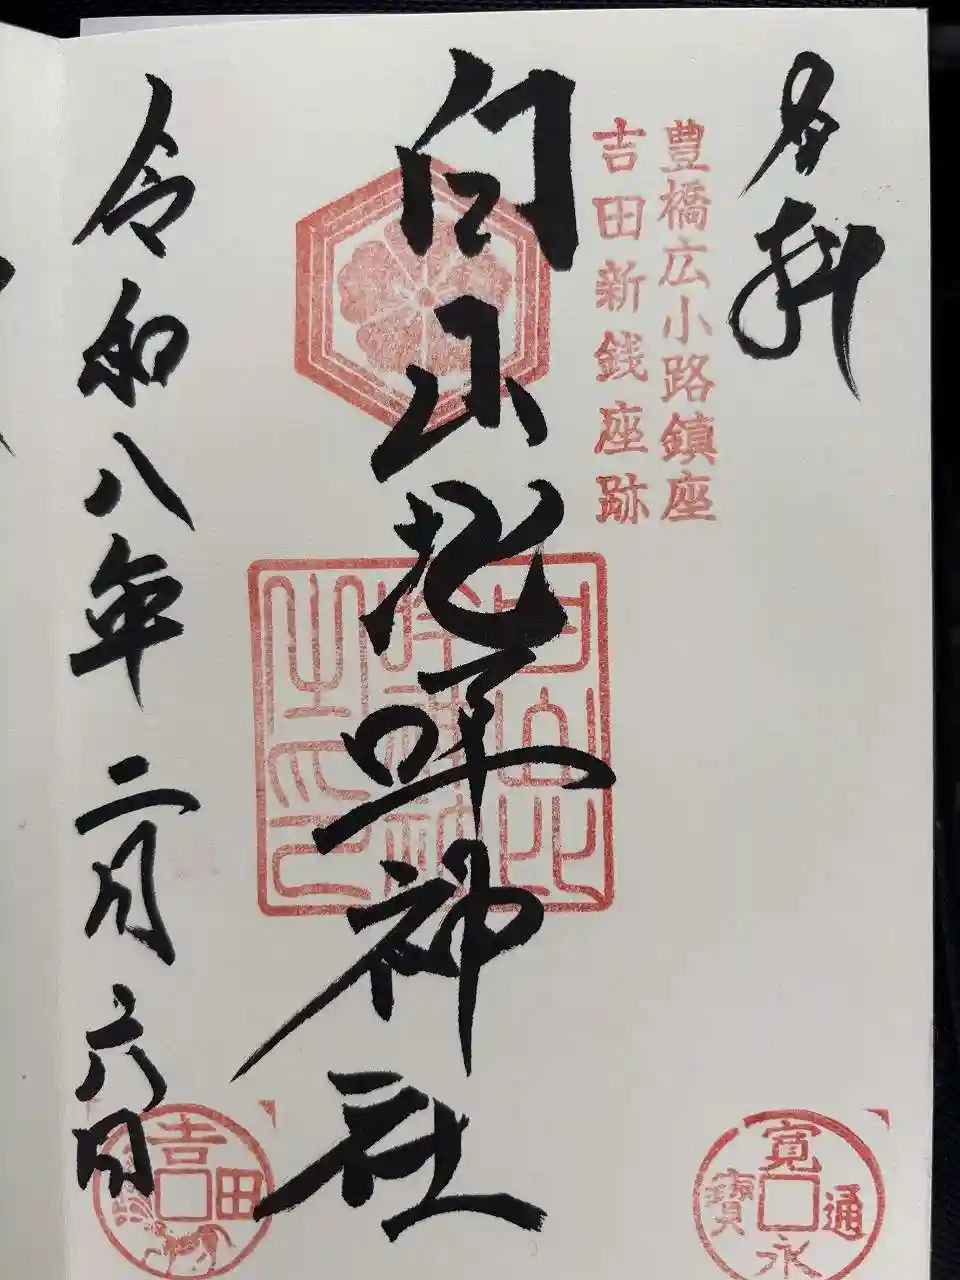 奉拝
豊橋広小路鎮座
吉田新銭座跡
白山比咩神社
白山比
咩神社
之印
令和八年二月六日
寛永通寳
吉田